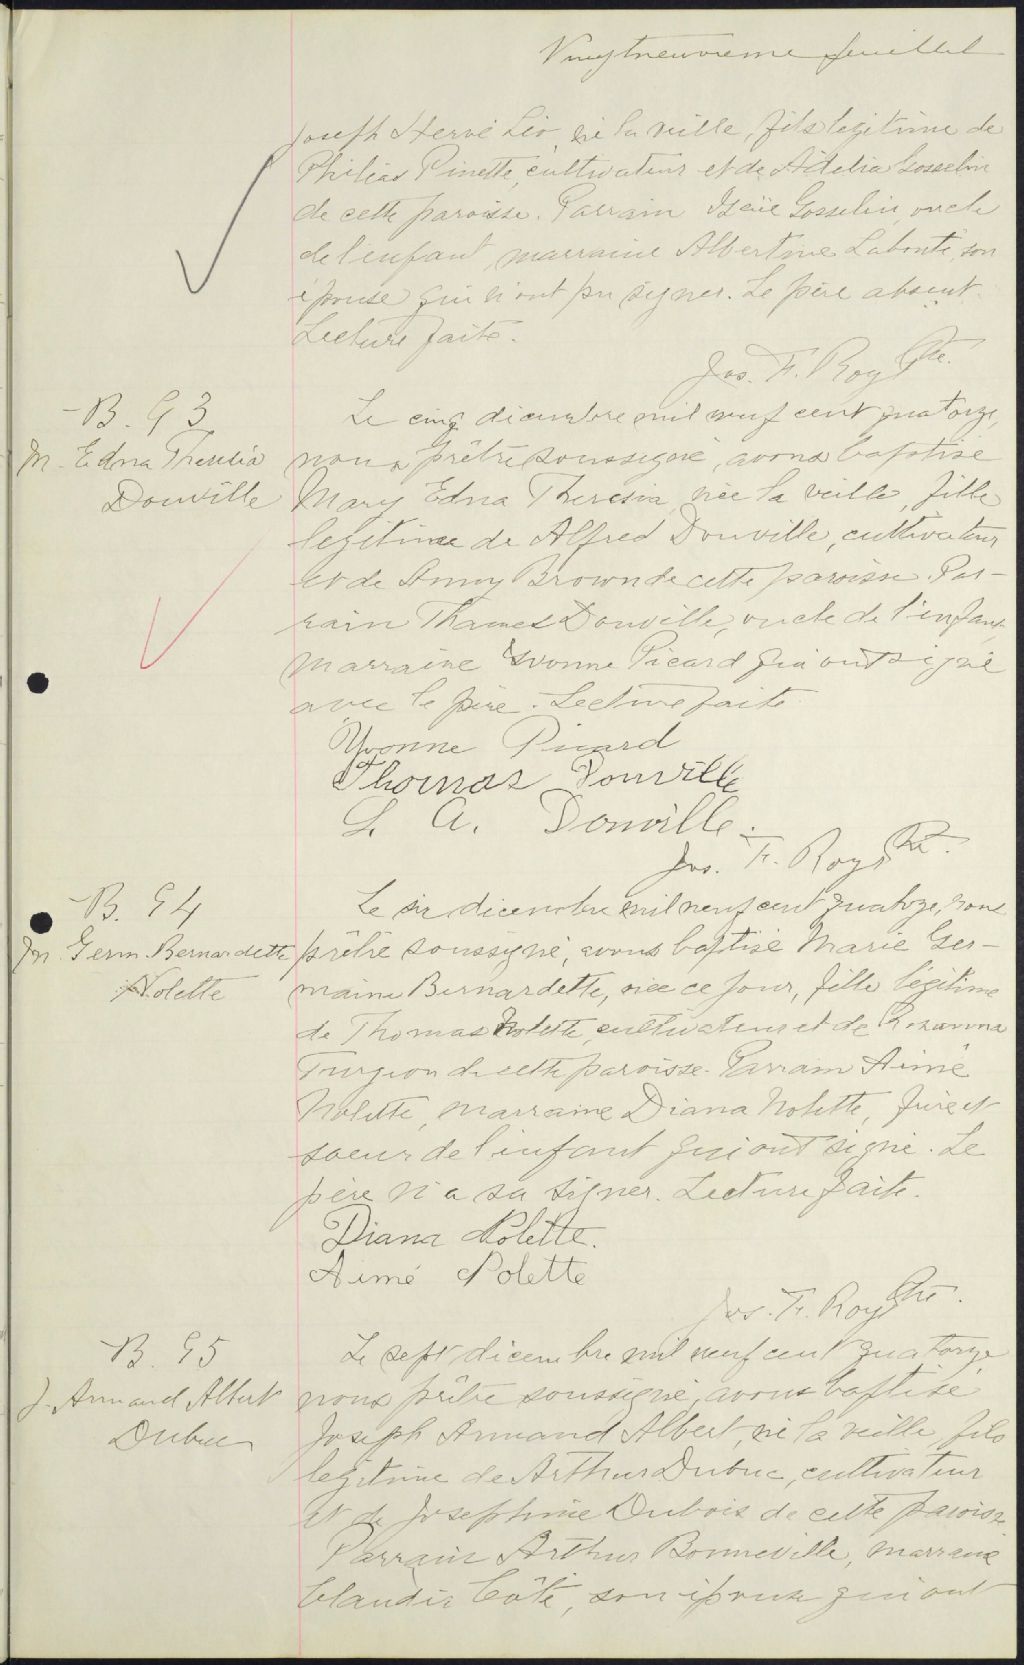 Vingtneuvieme feuillet
Joseph Hervé Léo, né la veille, fils legitime de
Philias Pinette, cultivateur et de Adelia Gosselin
de cette paroisse. Parrain Isaïe Gosselin, oncle
de l'enfant, marraine Albertine Labonté, son
épouse qui n'ont pu signer. Le père absent.
Lecture faite.
Jos. F. Roy Ptre.
B. 93
M. Edna Theresia
Douville
Le cinq décembre mil neuf cent quatorze,
nous, prêtre soussigné, avons baptisé
Mary Edna Theresia, née la veille, fille
legitime de Alfred Douville, cultivateur
et de Anny Brown de cette paroisse. Par-
rain Thomas Douville, oncle de l'enfant,
marraine Yvonne Picard qui ont signé
avec le père. Lecture faite.
Yvonne Picard
Thomas Douville
L. A. Douville.
Jos. F. Roy Ptre.
B. 94
M. Germ. Bernardette
Nolette
Le six décembre mil neuf cent quatorze, nous
prêtre soussigné, avons baptisé Marie Ger-
maine Bernardette, née ce jour, fille légitime
de Thomas Nolette, cultivateur et de Rosanna
Turgeon de cette paroisse. Parrain Aimé
Nolette, marraine Diana Nolette, frère et
soeur de l'enfant qui ont signé. Le
père n'a su signer. Lecture faite.
Diana Nolette.
Aimé Nolette
Jos. F. Roy Ptre.
B. 95
J. Armand Albert
Dubuc
Le sept décembre mil neuf cent quatorze
nous prêtre soussigné, avons baptisé
Joseph Armand Albert, né la veille, fils
legitime de Arthur Dubuc, cultivateur
et de Josephine Dubois de cette paroisse.
Parrain Arthur Bonneville, marraine
Claudia Côté, son épouse qui ont